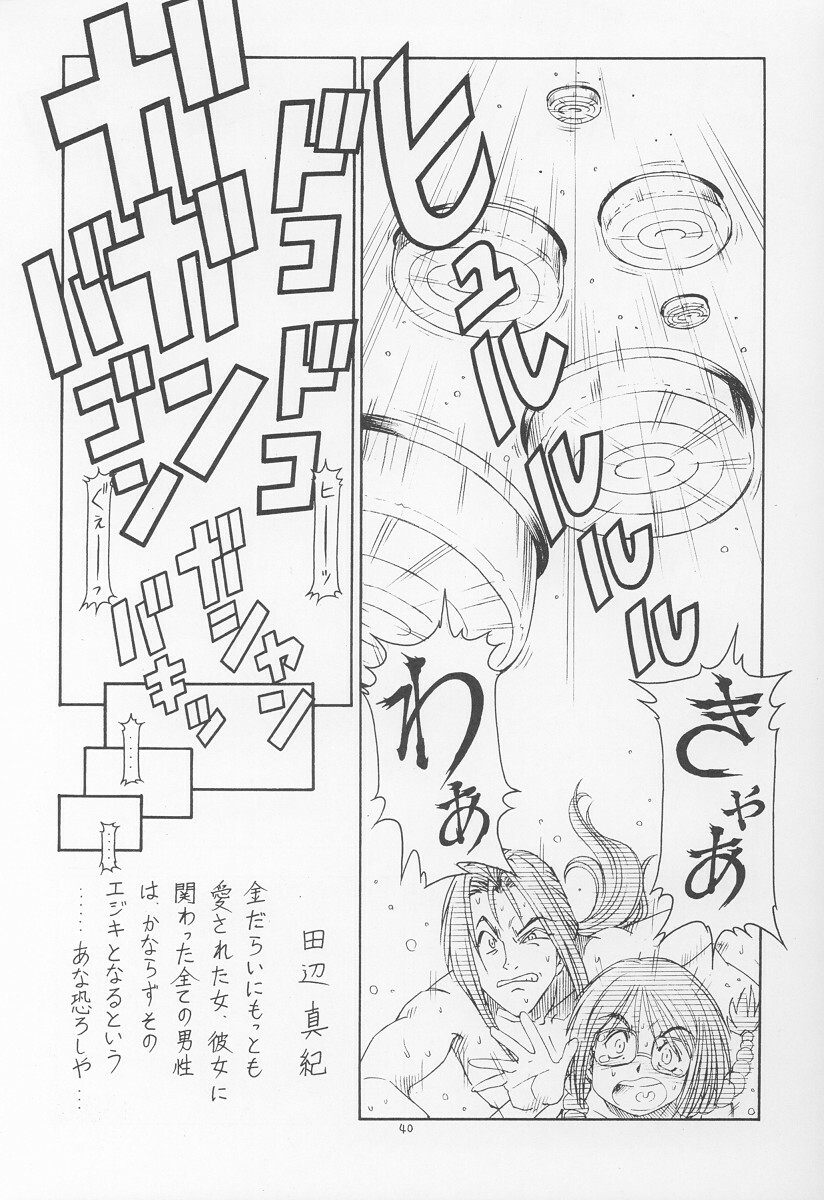 ヒュルルルルル
きゃあ
わぁ
ドコドコ
ガガガン
バゴン
ヒーーッ
ぐえーーっ
ガシャン
バキッ
‥‥
‥‥
田辺真紀
金だらいにもっとも
愛された女、彼女に
関わった全ての男性
は、かならずその
エジキとなるという
……あな恐ろしや…
40